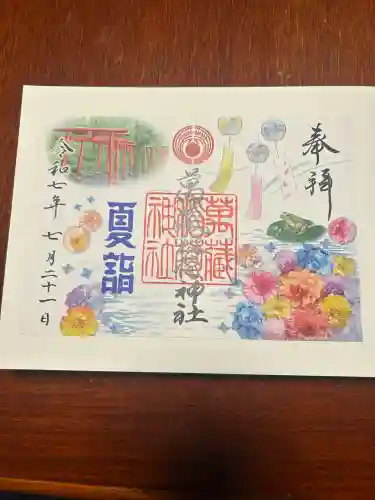 奉拝
萬蔵稲荷神社
萬蔵
稲荷
神社
夏詣
令和七年七月二十一日